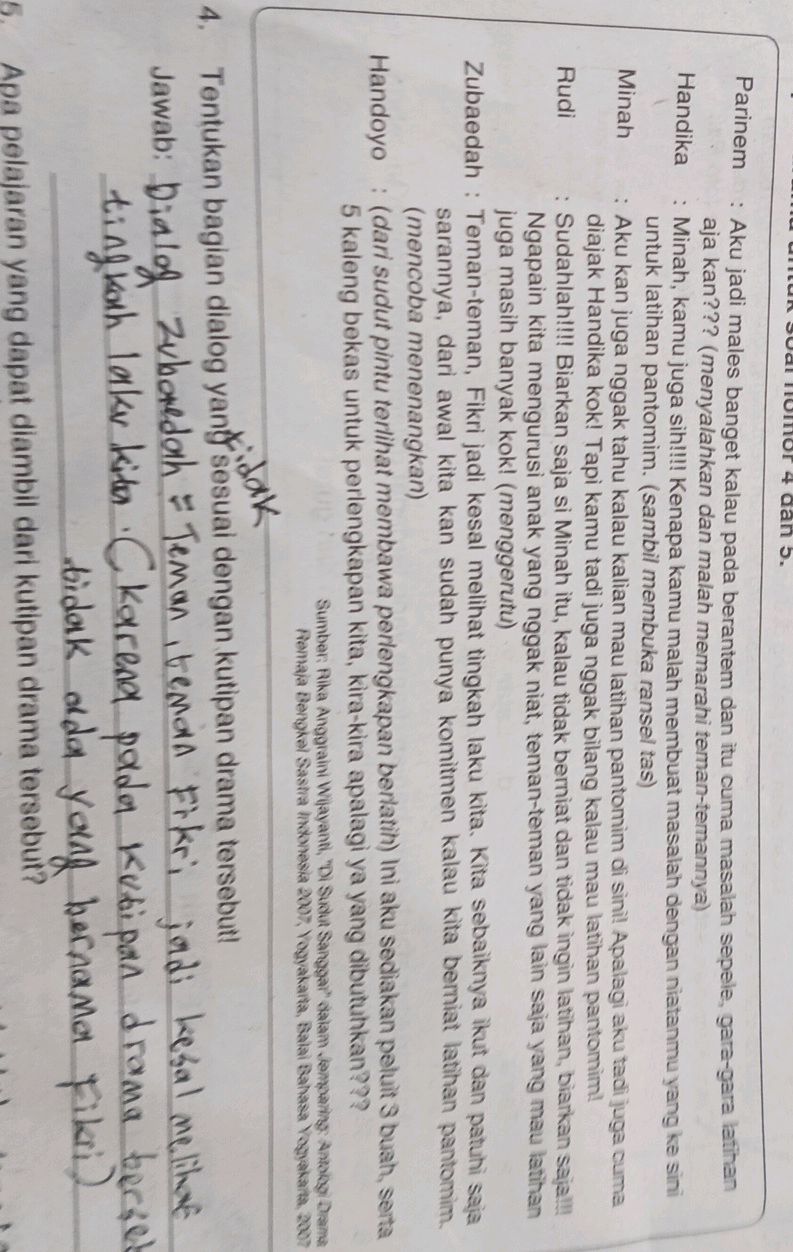 soal nomor 4 dan 5.
Parinem : Aku jadi males banget kalau pada berantem dan itu cuma masalah sepele, gara-gara latihan
aja kan??? (menyalahkan dan malah memarahi teman-temannya)
Handika : Minah, kamu juga sih!!!! Kenapa kamu malah membuat masalah dengan niatanmu yang ke sini
untuk latihan pantomim. (sambil membuka ransel tas)
Minah : Aku kan juga nggak tahu kalau kalian mau latihan pantomim di sini! Apalagi aku tadi juga cuma
diajak Handika kok! Tapi kamu tadi juga nggak bilang kalau mau latihan pantomim!
Rudi : Sudahlah!!!! Biarkan saja si Minah itu, kalau tidak berniat dan tidak ingin latihan, biarkan saja!!!!
Ngapain kita mengurusi anak yang nggak niat, teman-teman yang lain saja yang mau latihan
juga masih banyak kok! (menggerutu)
Zubaedah : Teman-teman, Fikri jadi kesal melihat tingkah laku kita. Kita sebaiknya ikut dan patuhi saja
sarannya, dari awal kita kan sudah punya komitmen kalau kita berniat latihan pantomim.
(mencoba menenangkan)
Handoyo : (dari sudut pintu terlihat membawa perlengkapan berlatih) Ini aku sediakan peluit 3 buah, serta
5 kaleng bekas untuk perlengkapan kita, kira-kira apalagi ya yang dibutuhkan???
Sumber: Rika Anggraini Wijayanti, "Di Sudut Sanggar" dalam Jemparing: Antologi Drama
Remaja Bengkel Sastra Indonesia 2007, Yogyakarta, Balai Bahasa Yogyakarta, 2007
tidak
4. Tentukan bagian dialog yang sesuai dengan kutipan drama tersebut!
Jawab: Dialog Zubaedah = Teman, teman Fikri jadi kesal melihat
tingkah laku kita. (karena pada kutipan drama terseb
tidak ada yang bernama Fikri)
5. Apa pelajaran yang dapat diambil dari kutipan drama tersebut?